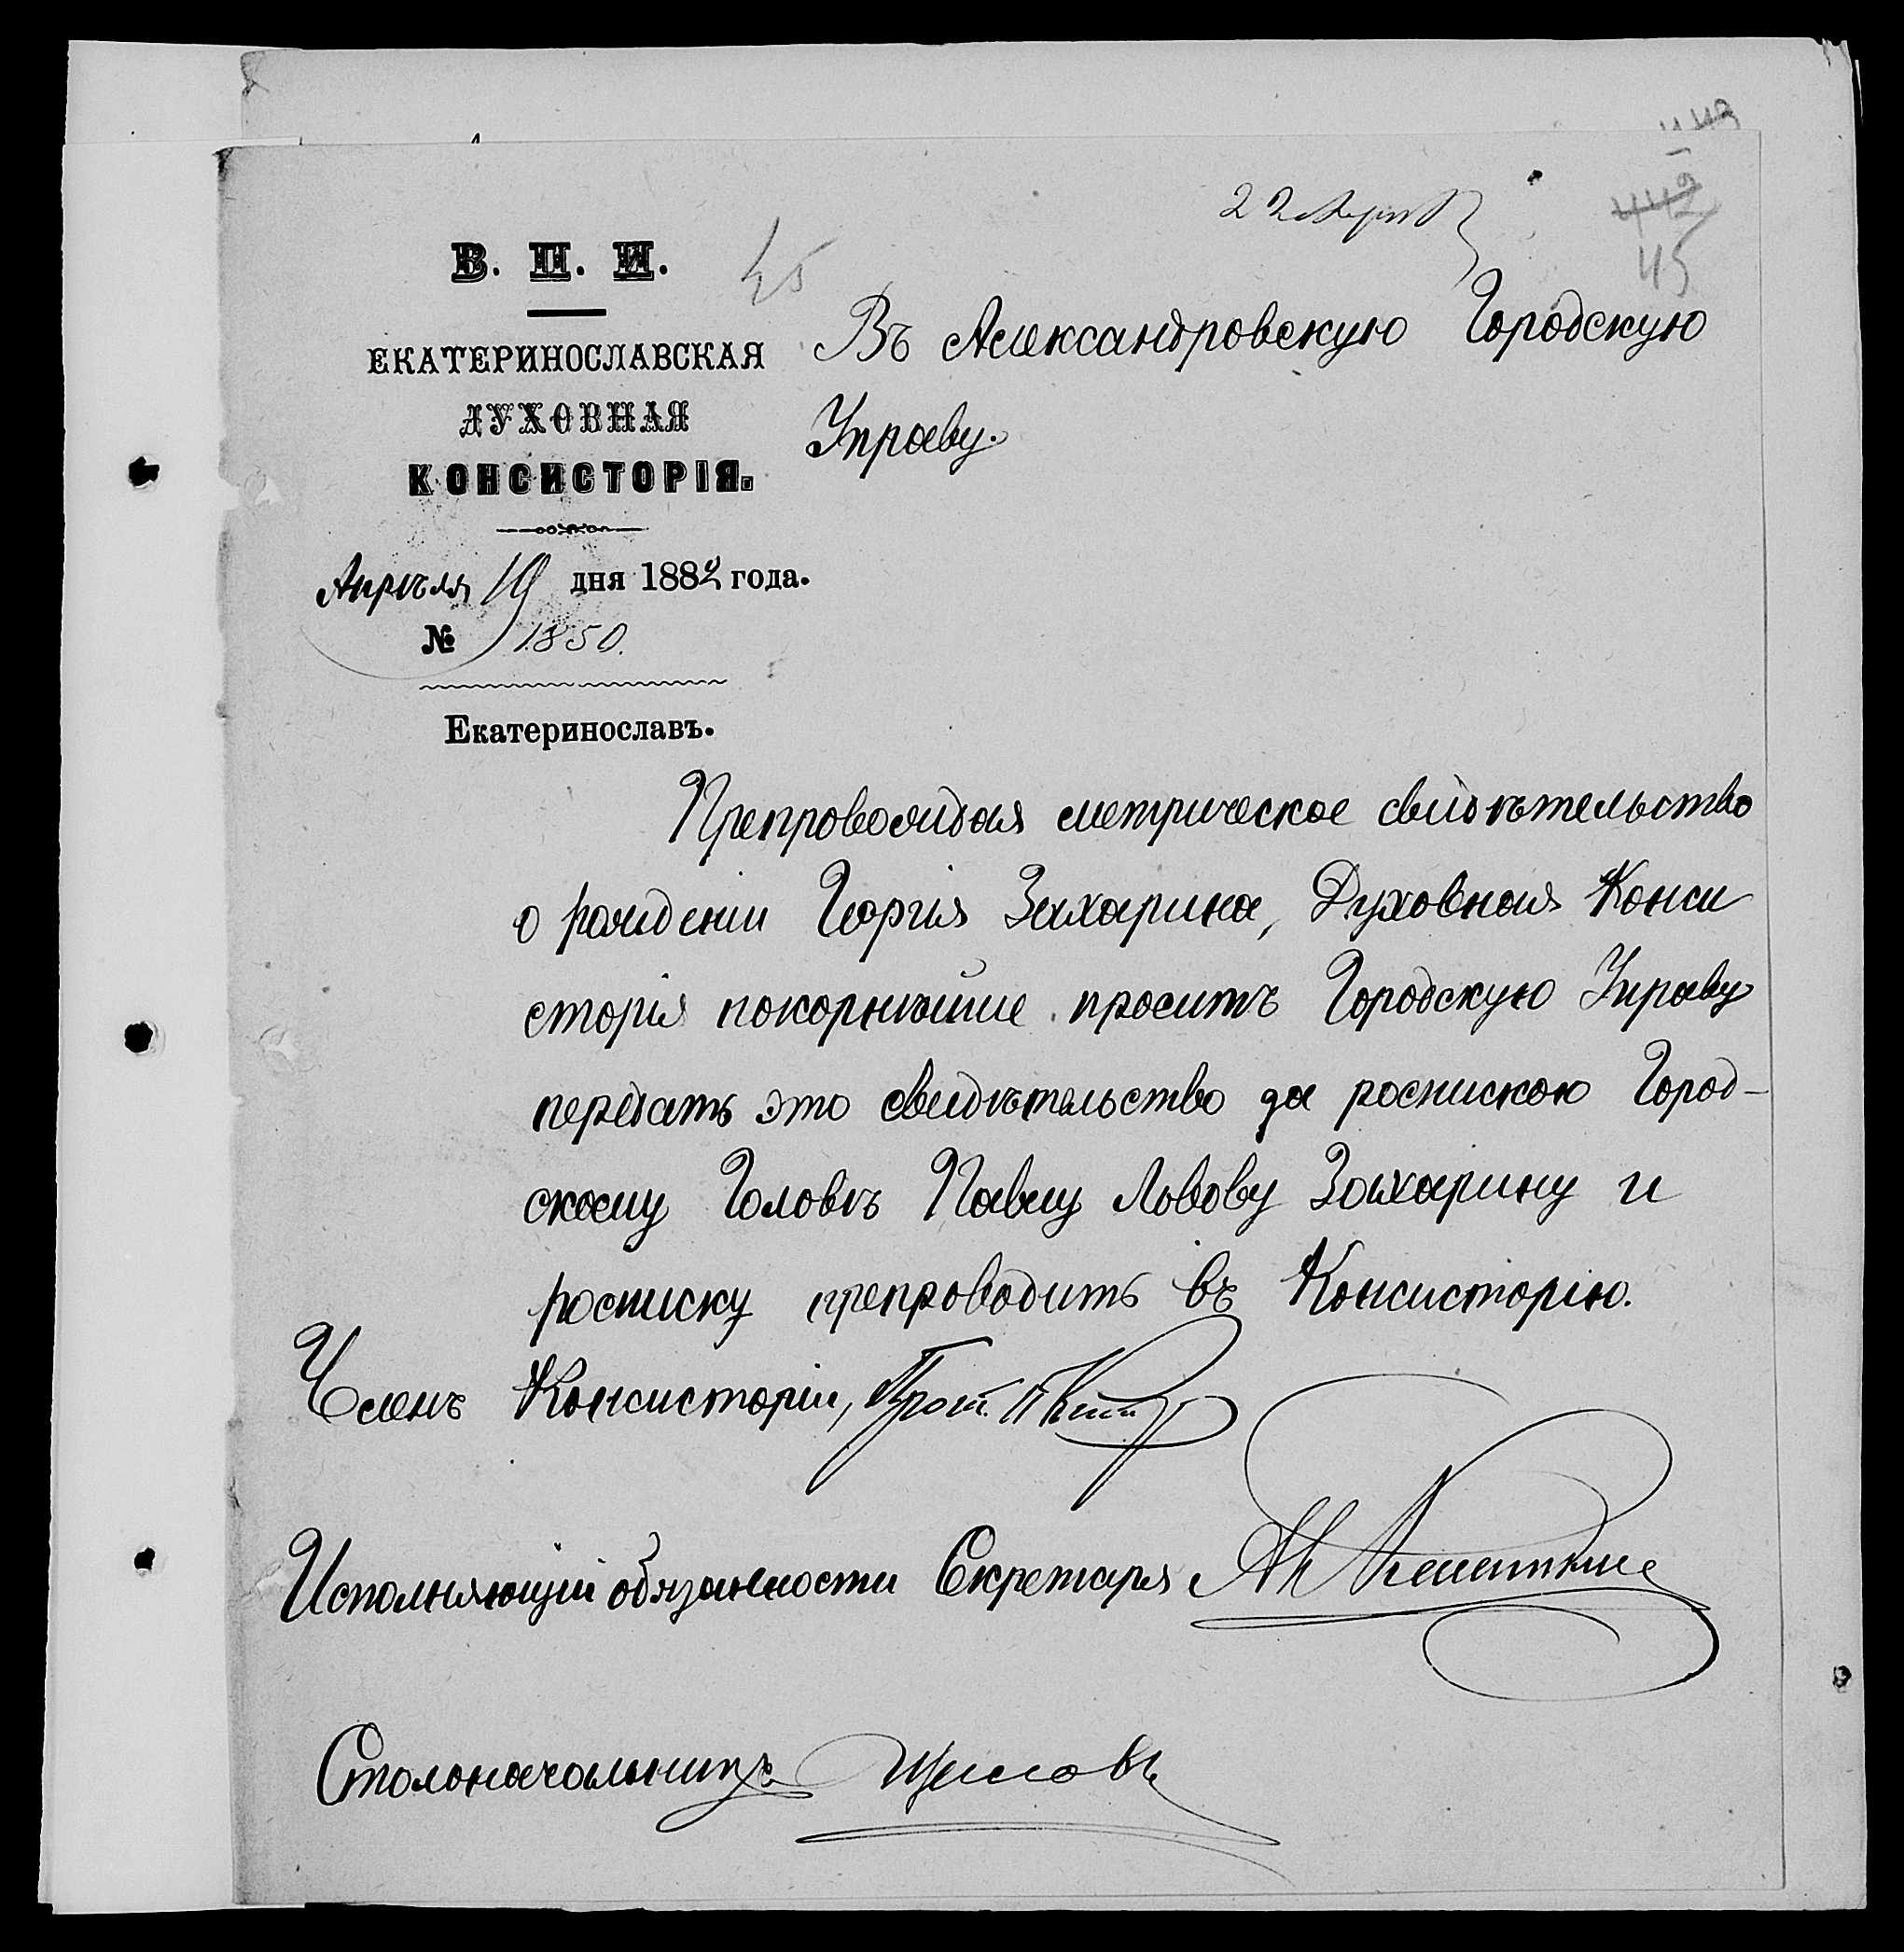 22 Апрѣля
442
45
45
В. П. И.
ЕКАТЕРИНОСЛАВСКАЯ
ДУХОВНАЯ
КОНСИСТОРІЯ.
Апрѣля 19 дня 1882 года.
№ 1850.
Екатеринославъ.
Въ Александровскую Городскую
Управу.
Препровождая метрическое свидѣтельство
о рожденіи Георгія Захарина, Духовная Конси
сторія покорнѣйше проситъ Городскую Управу
передать это свидѣтельство за роспискою Город-
скому Головѣ Павлу Львову Захарину и
росписку препроводить въ Консисторію.
Членъ Консисторіи, Прот.
Исполняющій обязанности Секретаря
Столоначальникъ